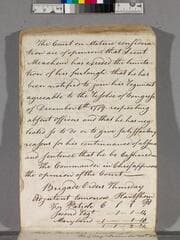 The Court on Mature considera
tion are of opinion that Lieut
Meacham has exceeded the limita
tion of his furlough that he has
been notified to join his Regiment
agreeable to the Resolve of Congress
of December 6th 1779 respecting
absent officers and that he has neg
lected so to do or to give satisfactory
reasons for his continuance of absence
and sentence that he be Cashiered
The Commander in Chief approves
the opinion of the Court
Brigade Orders Thursday
Regiment tomorrow
For Patrole
Jersey Regt
Maryland